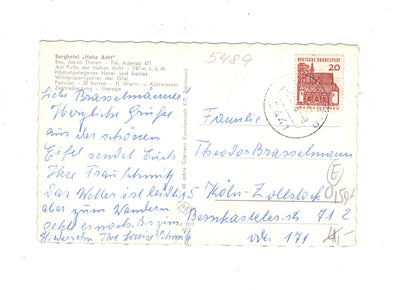 Berghotel „Hohe Acht"
Bes. Jakob Thelen - Tel. Adenau 471
Am Fuße der Hohen Acht - 747 m ü. d. M.
Höchstgelegenes Hotel und bestes
Wintersportgebiet der Eifel
Pension - 30 Betten - fl. Warm- u. Kaltwasser
Zentralheizung - Garage
5489
DEUTSCHE BUNDESPOST
20
5441
Liebe Brasselmänner
Herzliche Grüße
aus der schönen
Eifel sendet Euch
Ihre Frau Schmitz
Das Wetter ist leidlich
aber zum Wandern
geht es noch. Bis zum
Wiedersehn Ihre Louise Schmitz
Familie
Theodor Brasselmann
5 Köln-Zollstock
Bernkastelerstr 912
oder 171
E